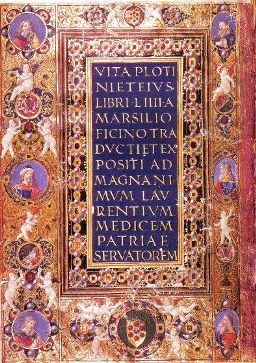 VITA PLOTI
NI ET EIVS
LIBRI · LIIII · A
MARSILIO
FICINO TRA
DVCTI ET EX
POSITI AD
MAGNANI
MVM LAV
RENTIVM
MEDICEM
PATRIAE
SERVATOREM